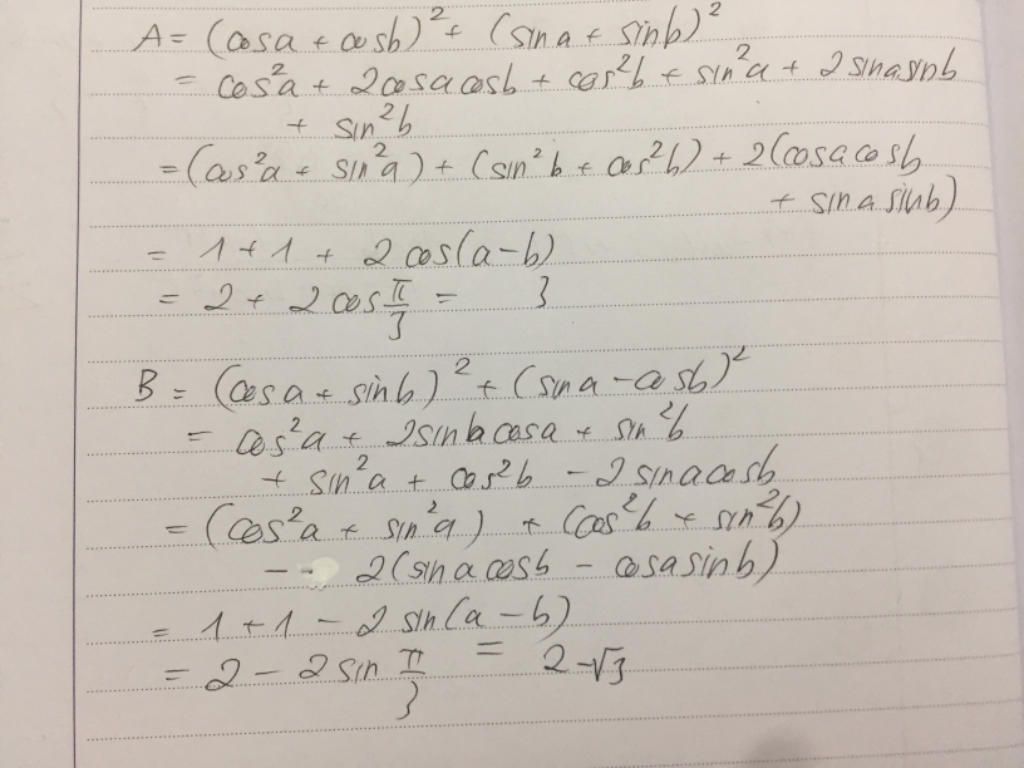 A = (cosa + cosb)² + (sina + sinb)²
= cos²a + 2cosacosb + cos²b + sin²a + 2sinasinb
+ sin²b
= (cos²a + sin²a) + (sin²b + cos²b) + 2(cosacosb
+ sinasinb)
= 1 + 1 + 2cos(a-b)
= 2 + 2cos π/3 = 3
B = (cosa + sinb)² + (sina - cosb)²
= cos²a + 2sinbcosa + sin²b
+ sin²a + cos²b - 2sinacosb
= (cos²a + sin²a) + (cos²b + sin²b)
- 2(sinacosb - cosasinb)
= 1 + 1 - 2sin(a-b)
= 2 - 2sin π/3 = 2-√3